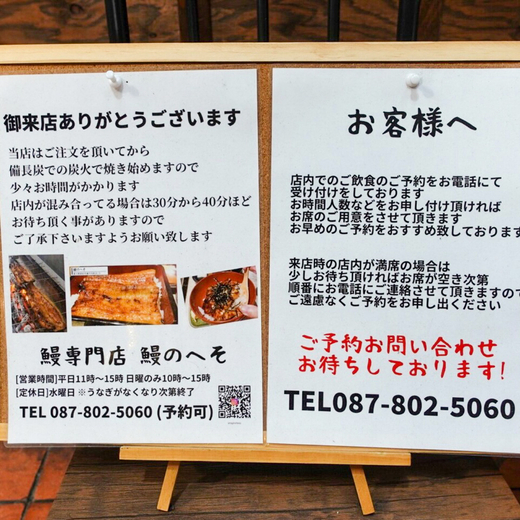 御来店ありがとうございます
当店はご注文を頂いてから
備長炭での炭火で焼き始めますので
少々お時間がかかります
店内が混み合ってる場合は30分から40分ほど
お待ち頂く事がありますので
ご了承下さいますようお願い致します
鰻専門店 鰻のへそ
[営業時間]平日11時～15時 日曜のみ10時～15時
[定休日]水曜日 ※うなぎがなくなり次第終了
TEL 087-802-5060 (予約可)
お客様へ
店内でのご飲食のご予約をお電話にて
受け付けをしております
お時間人数などをお申し付け頂ければ
お席のご用意をさせて頂きます
お早めのご予約をおすすめ致しております
来店時の店内が満席の場合は
少しお待ち頂ければお席が空き次第
順番にお電話にご連絡させて頂きますので
ご遠慮なくご予約をお申し出ください
ご予約お問い合わせ
お待ちしております!
TEL087-802-5060